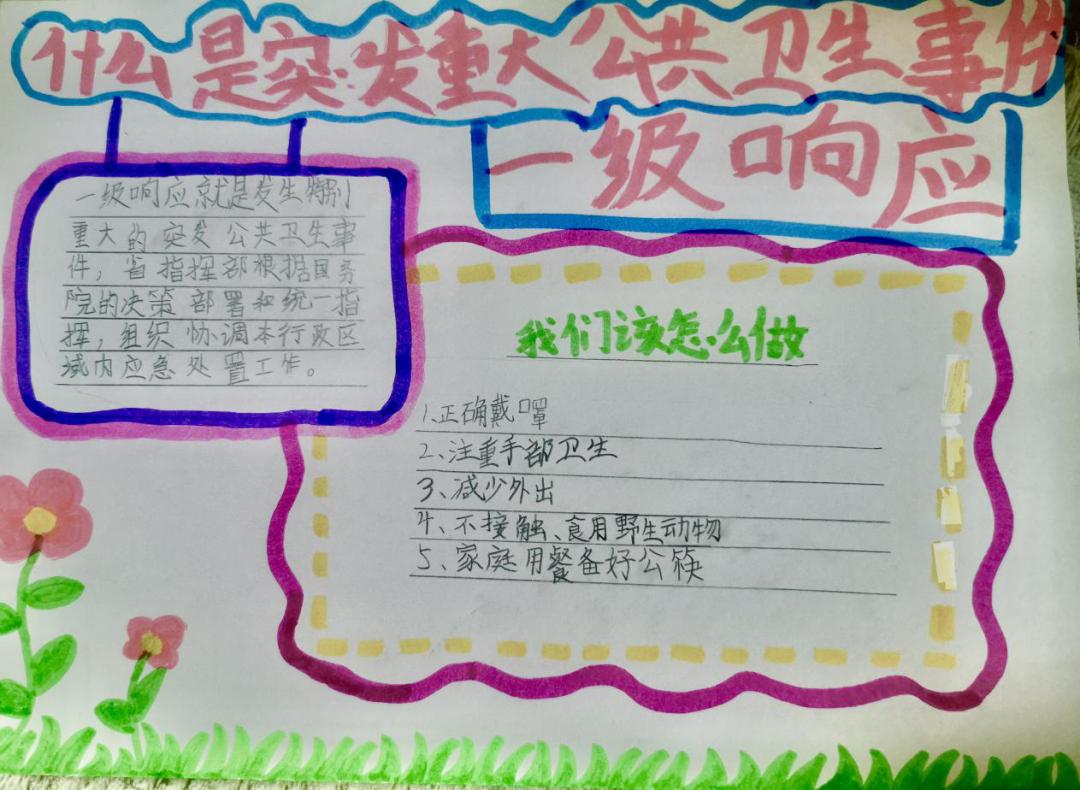 什么是突发重大公共卫生事件
一级响应
一级响应就是发生特别
重大的突发公共卫生事
件，省指挥部根据国务
院的决策部署和统一指
挥，组织协调本行政区
域内应急处置工作。
我们该怎么做
1、正确戴口罩
2、注重手部卫生
3、减少外出
4、不接触、食用野生动物
5、家庭用餐备好公筷